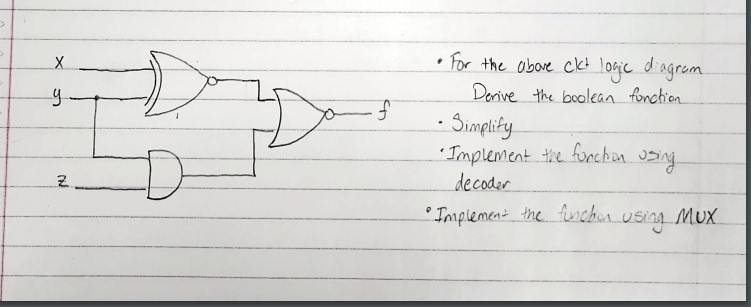 x
y
z
f
• For the above ckt logic diagram
Derive the boolean function
• Simplify
• Implement the function using
decoder
• Implement the function using MUX